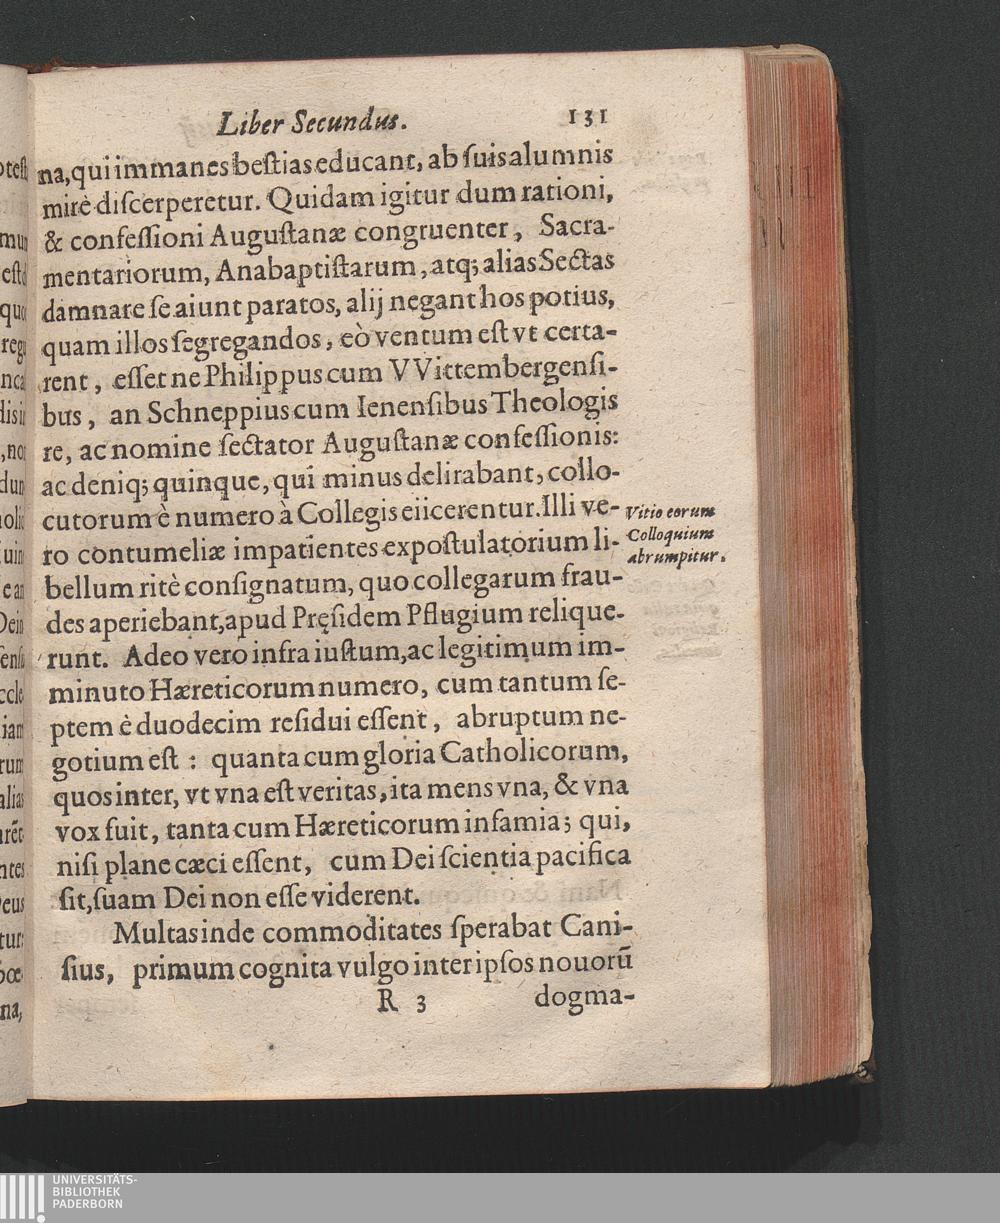 Liber Secundus. 131
na, qui immanes bestias educant, ab suis alumnis
mirè discerperetur. Quidam igitur dum rationi,
& confessioni Augustanæ congruenter, Sacra-
mentariorum, Anabaptistarum, atq; alias Sectas
damnare se aiunt paratos, alij negant hos potius,
quam illos segregandos, eò ventum est vt certa-
rent, esset ne Philippus cum VVittembergensi-
bus, an Schneppius cum Ienensibus Theologis
re, ac nomine sectator Augustanæ confessionis:
ac deniq; quinque, qui minus delirabant, collo-
cutorum è numero à Collegis eiicerentur. Illi ve-
ro contumeliæ impatientes expostulatorium li-
bellum ritè consignatum, quo collegarum frau-
des aperiebant, apud Pręsidem Pflugium relique-
runt. Adeo vero infra iustum, ac legitimum im-
minuto Hæreticorum numero, cum tantum se-
ptem è duodecim residui essent, abruptum ne-
gotium est : quanta cum gloria Catholicorum,
quos inter, vt vna est veritas, ita mens vna, & vna
vox fuit, tanta cum Hæreticorum infamia; qui,
nisi plane cæci essent, cum Dei scientia pacifica
sit, suam Dei non esse viderent.
Multas inde commoditates sperabat Cani-
sius, primum cognita vulgo inter ipsos nouorũ
R 3 dogma-
Vitio eorum
Colloquium
abrumpitur.
UNIVERSITÄTS-
BIBLIOTHEK
PADERBORN